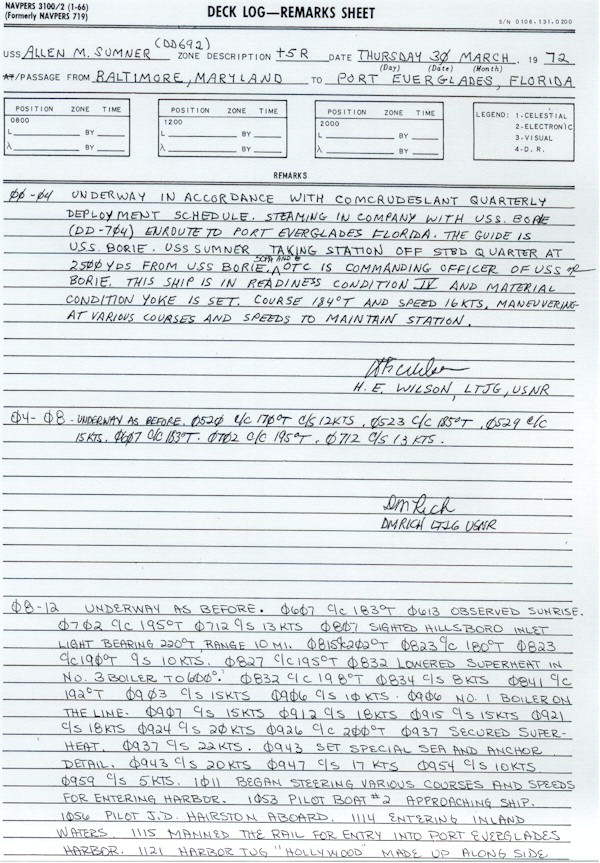 NAVPERS 3100/2 (1-66)
(Formerly NAVPERS 719)
DECK LOG—REMARKS SHEET
S/N 0106-131-0200
USS ALLEN M. SUMNER (DD692) ZONE DESCRIPTION +5R DATE THURSDAY 3Ø MARCH, 19 72
(Day) (Date) (Month)
AT/PASSAGE FROM BALTIMORE, MARYLAND TO PORT EVERGLADES, FLORIDA
POSITION ZONE TIME
0800
L BY
λ BY
POSITION ZONE TIME
1200
L BY
λ BY
POSITION ZONE TIME
2000
L BY
λ BY
LEGEND: 1-CELESTIAL
2-ELECTRONIC
3-VISUAL
4-D. R.
REMARKS
ØØ-Ø4 UNDERWAY IN ACCORDANCE WITH COMCRUDESLANT QUARTERLY
DEPLOYMENT SCHEDULE. STEAMING IN COMPANY WITH USS. BORIE
(DD-7Ø4) ENROUTE TO PORT EVERGLADES FLORIDA. THE GUIDE IS
USS. BORIE. USS SUMNER TAKING STATION OFF STBD QUARTER AT
25ØØ YDS FROM USS BORIE. SOPA AND OTC IS COMMANDING OFFICER OF USS
BORIE. THIS SHIP IS IN READINESS CONDITION IV AND MATERIAL
CONDITION YOKE IS SET. COURSE 184°T AND SPEED 16 KTS. MANEUVERING
AT VARIOUS COURSES AND SPEEDS TO MAINTAIN STATION.
H. E. WILSON, LTJG, USNR
Ø4- Ø8 - UNDERWAY AS BEFORE. Ø52Ø C/C 17Ø°T C/S 12KTS. Ø523 C/C 185°T. Ø529 C/C
15KTS. Ø6Ø7 C/C 183°T. Ø7Ø2 C/C 195°T. Ø712 C/S 13 KTS.
DM Rich
DM RICH LTJG USNR
Ø8-12 UNDERWAY AS BEFORE. Ø6Ø7 C/C 183°T Ø613 OBSERVED SUNRISE.
Ø7Ø2 C/C 195°T Ø712 C/S 13 KTS Ø8Ø7 SIGHTED HILLSBORO INLET
LIGHT BEARING 22Ø°T, RANGE 10 MI. Ø815 C/C 2Ø2°T Ø823 C/C 18Ø°T Ø823
C/C 19Ø°T C/S 1Ø KTS. Ø827 C/C 195°T Ø832 LOWERED SUPERHEAT IN
NO. 3 BOILER TO 6ØØ°. Ø832 C/C 198°T Ø834 C/S 8KTS Ø841 C/C
192°T Ø9Ø3 C/S 15 KTS Ø9Ø6 C/S 1Ø KTS. Ø9Ø6 NO. 1 BOILER ON
THE LINE. Ø9Ø7 C/S 15KTS Ø912 C/S 18KTS Ø915 C/S 15KTS Ø921
C/S 18KTS Ø924 C/S 2ØKTS Ø926 C/C 2ØØ°T Ø937 SECURED SUPER-
HEAT. Ø937 C/S 22KTS. Ø943 SET SPECIAL SEA AND ANCHOR
DETAIL. Ø943 C/S 2ØKTS Ø947 C/S 17 KTS Ø954 C/S 1ØKTS
Ø959 C/S 5KTS. 1Ø11 BEGAN STEERING VARIOUS COURSES AND SPEEDS
FOR ENTERING HARBOR. 1Ø53 PILOT BOAT #2 APPROACHING SHIP.
1Ø56 PILOT J.D. HAIRSTON ABOARD. 1114 ENTERING INLAND
WATERS. 1115 MANNED THE RAIL FOR ENTRY INTO PORT EVERGLADES
HARBOR. 1121 HARBOR TUG "HOLLYWOOD" MADE UP ALONG SIDE